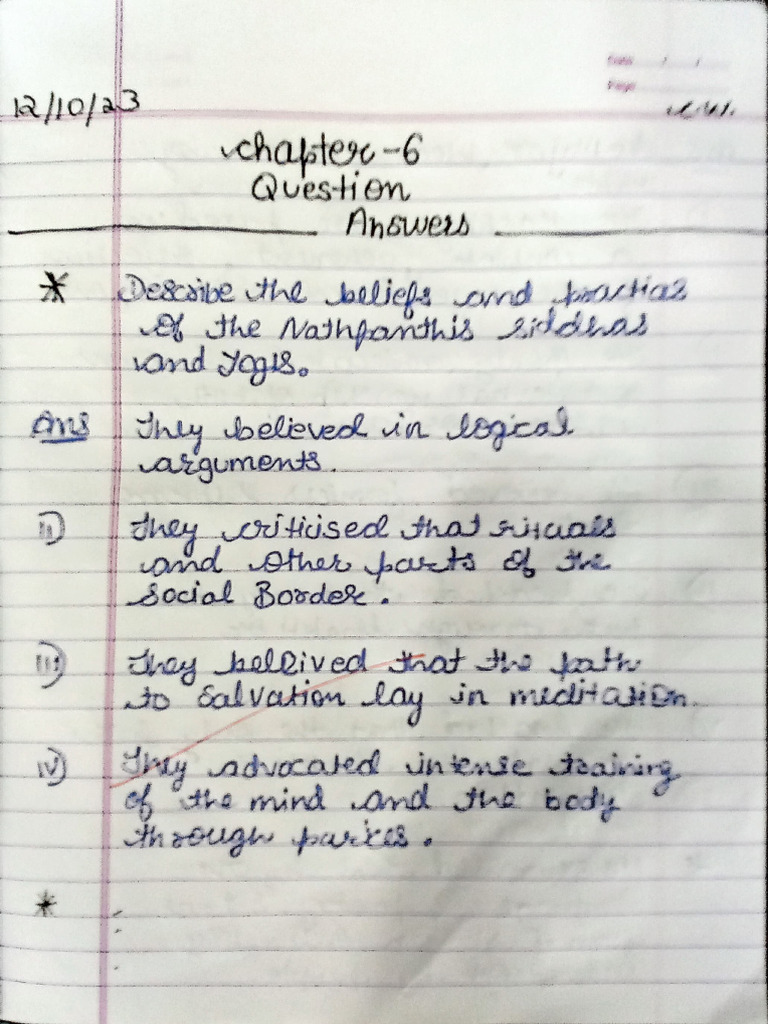 Date / /
Page
12/10/23
Chapter-6
Question
Answers
* Describe the beliefs and practias
of the Nathpanthis siddhas
and Yogis.
Ans They believed in logical
arguments.
ii) They criticised that rituals
and other parts of the
Social Border.
iii) They belleived that the path
to Salvation lay in meditation.
iv) They advocated intense training
of the mind and the body
through
*